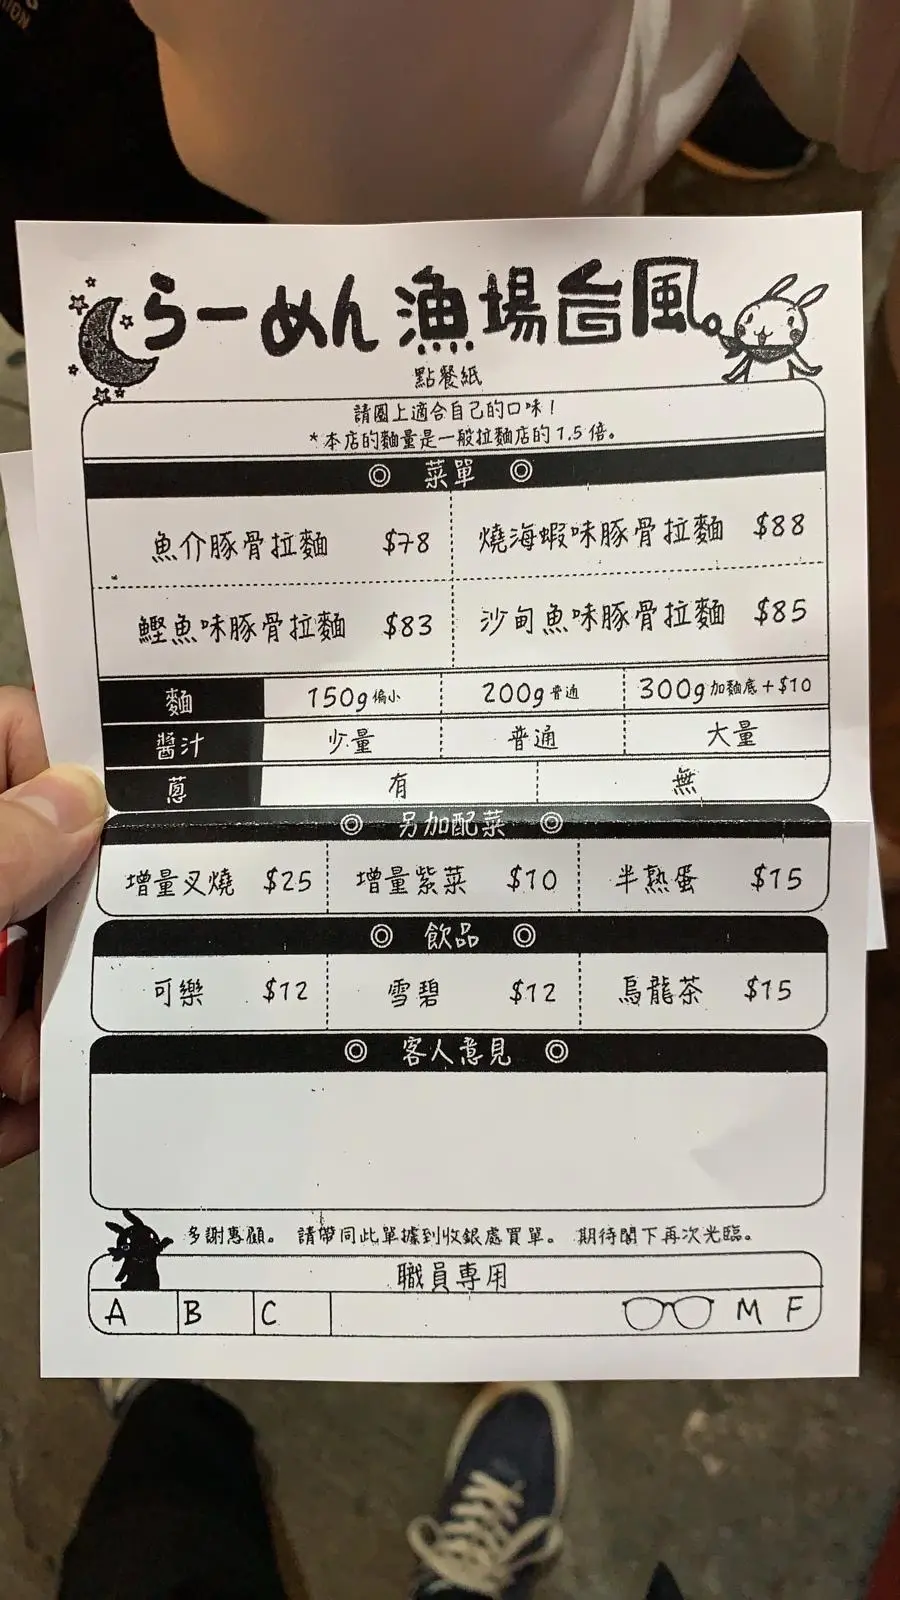 らーめん 漁場台風。
點餐紙
請圈上適合自己的口味！
*本店的麵量是一般拉麵店的1.5倍。
◎ 菜單 ◎
魚介豚骨拉麵 $78 燒海蝦味豚骨拉麵 $88
鰹魚味豚骨拉麵 $83 沙甸魚味豚骨拉麵 $85
麵 150g偏小 200g普通 300g加麵底+$10
醬汁 少量 普通 大量
蔥 有 無
◎ 另加配菜 ◎
增量叉燒 $25 增量紫菜 $10 半熟蛋 $15
◎ 飲品 ◎
可樂 $12 雪碧 $12 烏龍茶 $15
◎ 客人意見 ◎
多謝惠顧。 請帶同此單據到收銀處買單。 期待閣下再次光臨。
職員專用
A B C M F